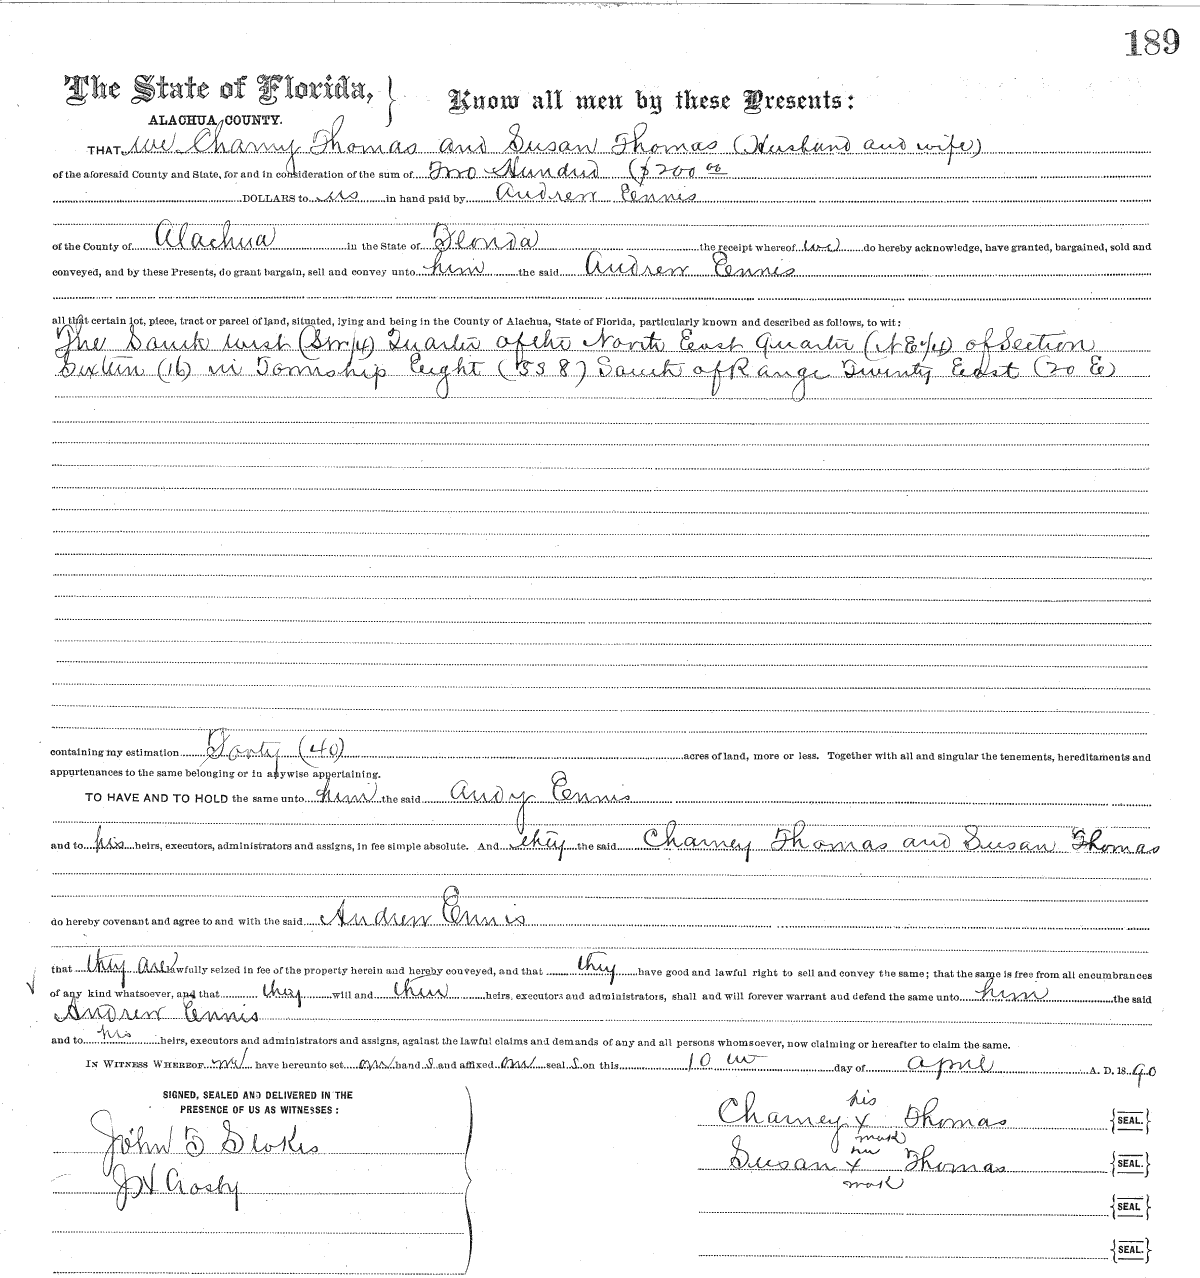 189
The State of Florida,
ALACHUA COUNTY.
Know all men by these Presents:
THAT we Charny Thomas and Susan Thomas (Husband and wife)
of the aforesaid County and State, for and in consideration of the sum of Two Hundred ($200 00
DOLLARS to us in hand paid by Andrew Ennis
of the County of Alachua in the State of Florida the receipt whereof we do hereby acknowledge, have granted, bargained, sold and
conveyed, and by these Presents, do grant bargain, sell and convey unto him the said Andrew Ennis
all that certain lot, piece, tract or parcel of land, situated, lying and being in the County of Alachua, State of Florida, particularly known and described as follows, to wit:
The South west (SW1/4) Quarter of the North East Quarter (NE1/4) of Section
Sixteen (16) in Township Eight ( 8) South of Range Twenty East (20 E)
containing my estimation Forty (40) acres of land, more or less. Together with all and singular the tenements, hereditaments and
appurtenances to the same belonging or in anywise appertaining.
TO HAVE AND TO HOLD the same unto him the said Andy Ennis
and to his heirs, executors, administrators and assigns, in fee simple absolute. And they the said Charney Thomas and Susan Thomas
do hereby covenant and agree to and with the said Andrew Ennis
that they are lawfully seized in fee of the property herein and hereby conveyed, and that they have good and lawful right to sell and convey the same; that the same is free from all encumbrances
of any kind whatsoever, and that they will and their heirs, executors and administrators, shall and will forever warrant and defend the same unto him the said
Andrew Ennis
and to his heirs, executors and administrators and assigns, against the lawful claims and demands of any and all persons whomsoever, now claiming or hereafter to claim the same.
IN WITNESS WHEREOF we have hereunto set our hand s and affixed our seal s on this 10 th day of April A. D. 18 90
SIGNED, SEALED AND DELIVERED IN THE
PRESENCE OF US AS WITNESSES:
his
Charney x Thomas SEAL.
mark
John T Stokes
her
Susan x Thomas SEAL.
mark
J H Crosby
SEAL
SEAL.